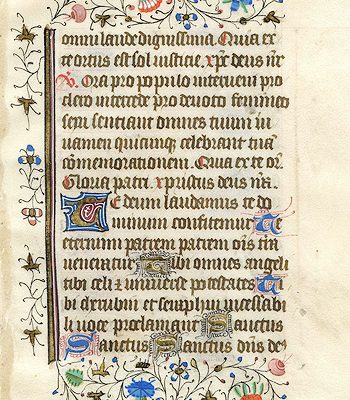 omni laude dignissima. Quia ex
te ortus est sol iusticie. xp̄c deus nr̄
Ora pro populo interveni pro
clero intercede pro devoto femineo
sexu sentiant omnes tuum iu
uamen quicūqꝫ celebrant tuā
cōmemorationem. Quia ex te or.
Gloria patri. xpristus deus nr̄a.
Te deum laudamus te do
minum confitemur Te
eternum patrem patrem oīs t̄ra
veneratur Tibi omnes angeli
tibi celi ⁊ universe potestates Ti
bi cherubin et seraphin incessabi
li voce proclamant Sanctus
Sanctus Sanctus dn̄s de